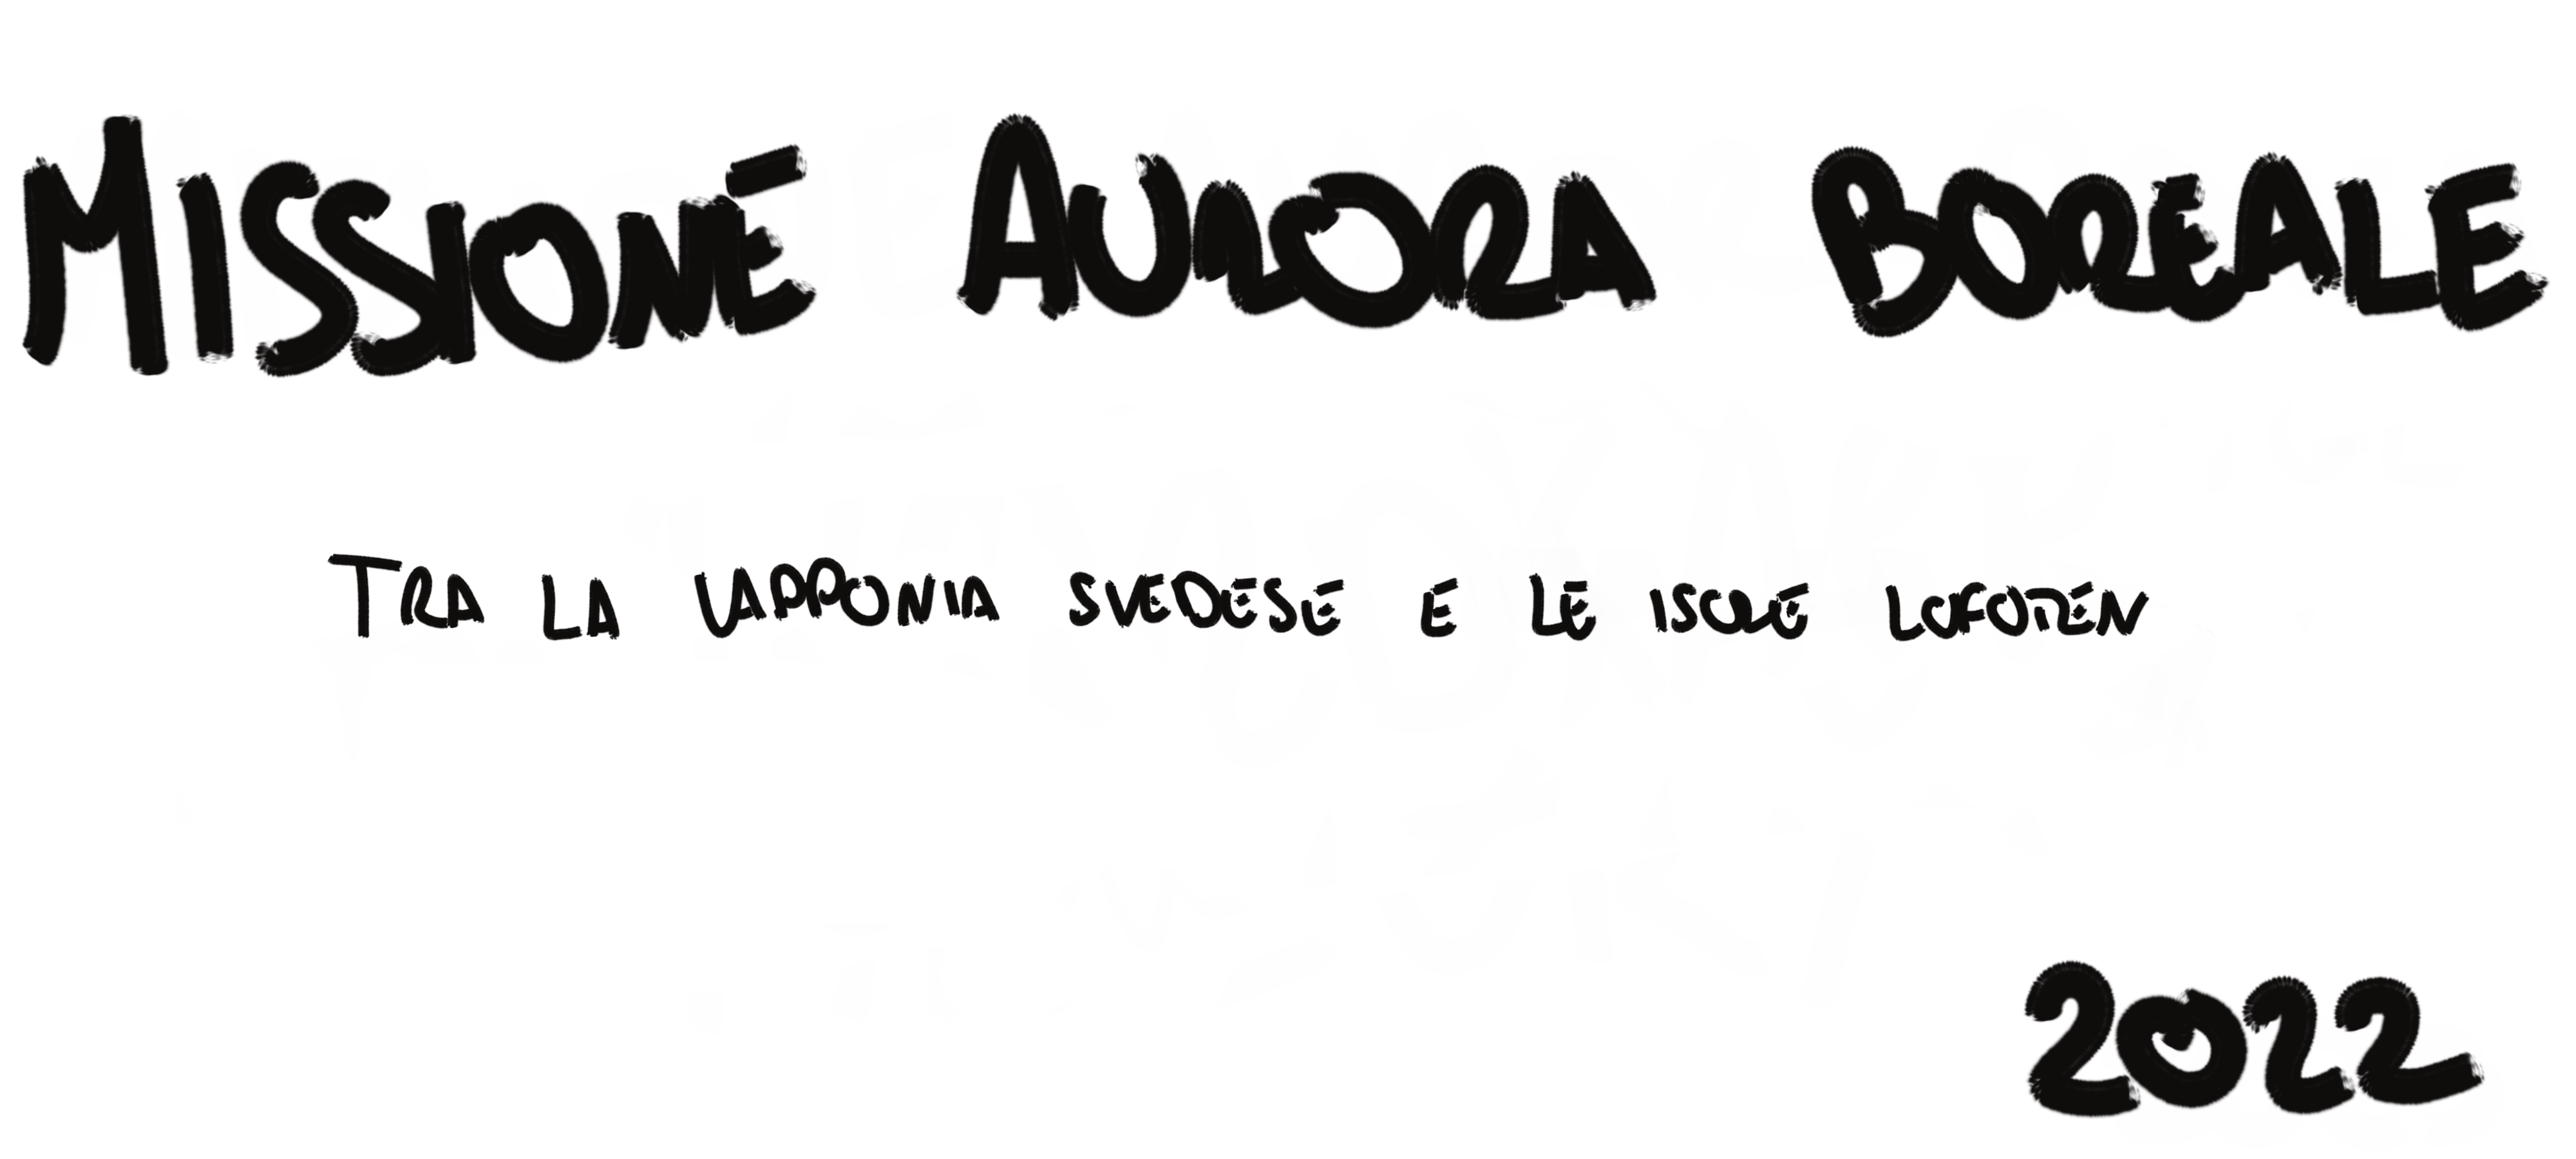 MISSIONE AURORA BOREALE
TRA LA LAPPONIA SVEDESE E LE ISOLE LOFOTEN
2022